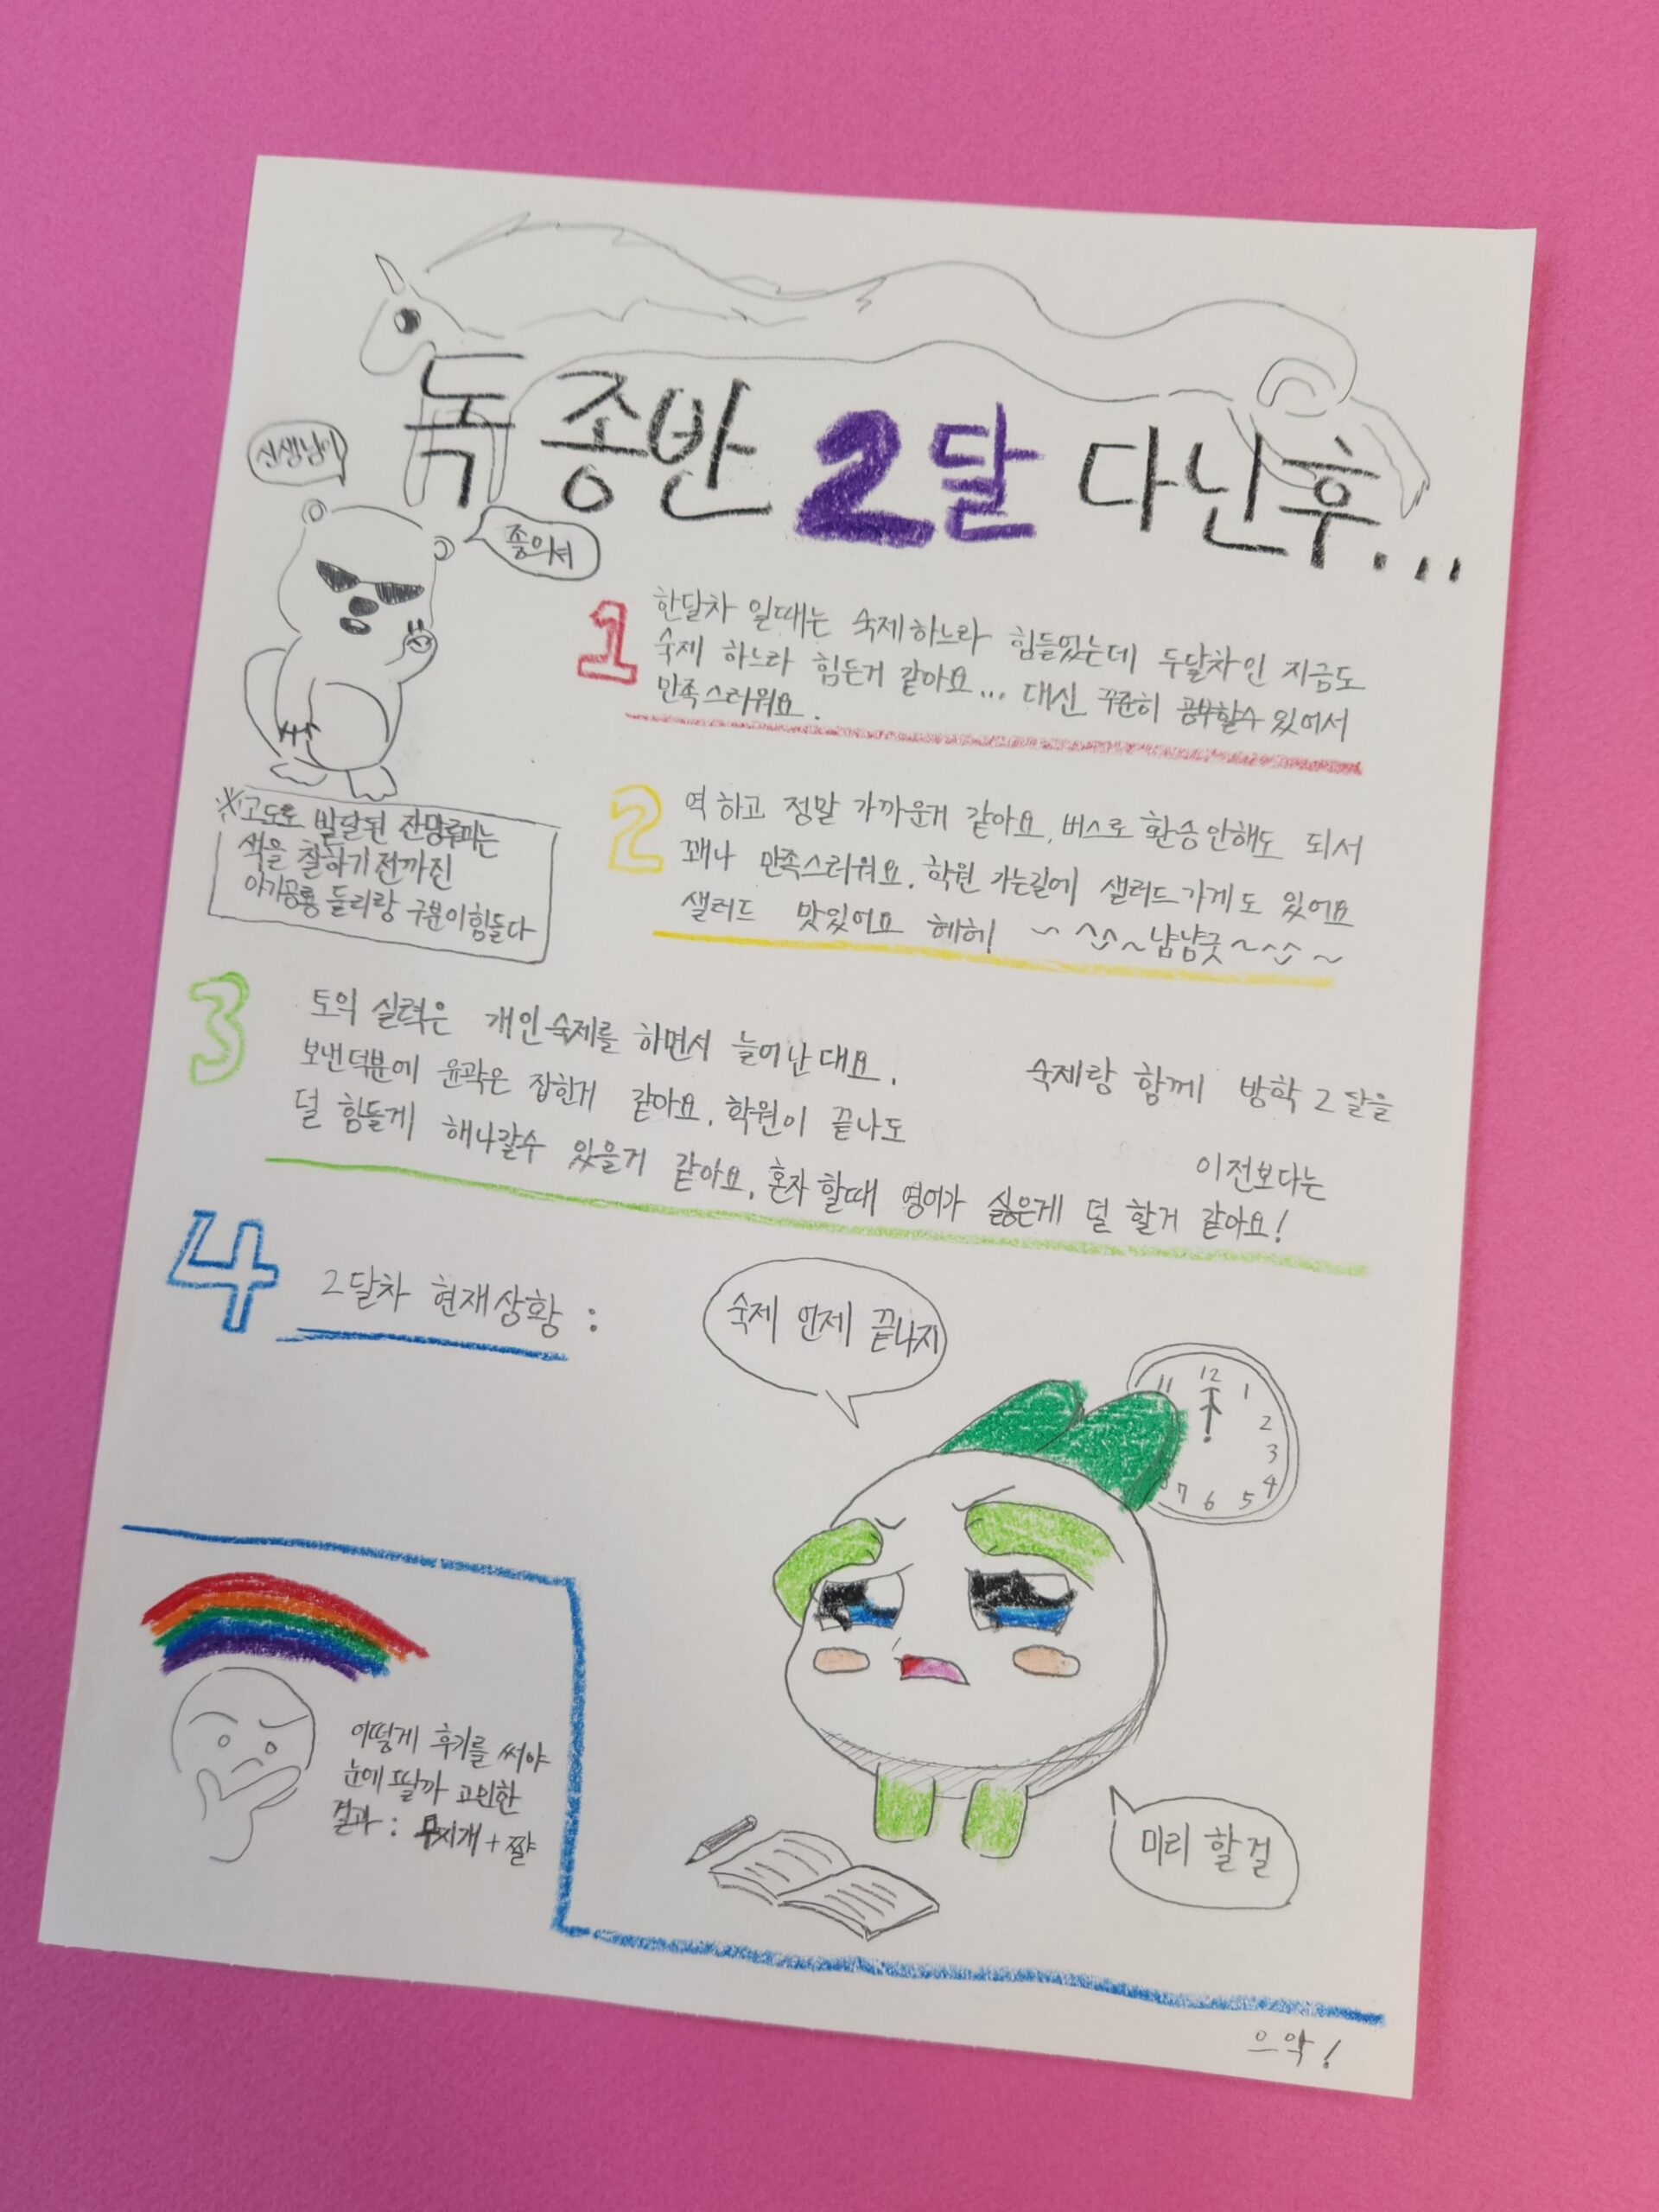 독종반 2달 다닌후...
선생님이
좋으셔
※고도로 발달된 잔망루피는
색을 칠하기 전까진
아기공룡 둘리랑 구분이힘들다
1 한달차 일때는 숙제하느라 힘들었는데 두달차인 지금도
숙제 하느라 힘든거 같아요... 대신 꾸준히 공부할수 있어서
만족스러워요.
2 역 하고 정말 가까운게 같아요. 버스로 환승안해도 되서
꽤나 만족스러워요. 학원 가는길에 샐러드가게도 있어요
샐러드 맛있어요 헤헤 ~ ^^~냠냠굿~^^~
3 토익 실력은 개인숙제를 하면서 늘어난대요. 숙제랑 함께 방학 2달을
보낸덕분에 윤곽은 잡힌게 같아요. 학원이 끝나도 이전보다는
덜 힘들게 해나갈수 있을거 같아요. 혼자 할때 영어가 싫은게 덜 할거 같아요!
4 2달차 현재상황 :
숙제 언제 끝나지
11 12 1
2
3
4
5
6
7
어떻게 후기를 써야
눈에 띌까 고민한
결과 : 무지개 + 짤
미리 할걸
으악!